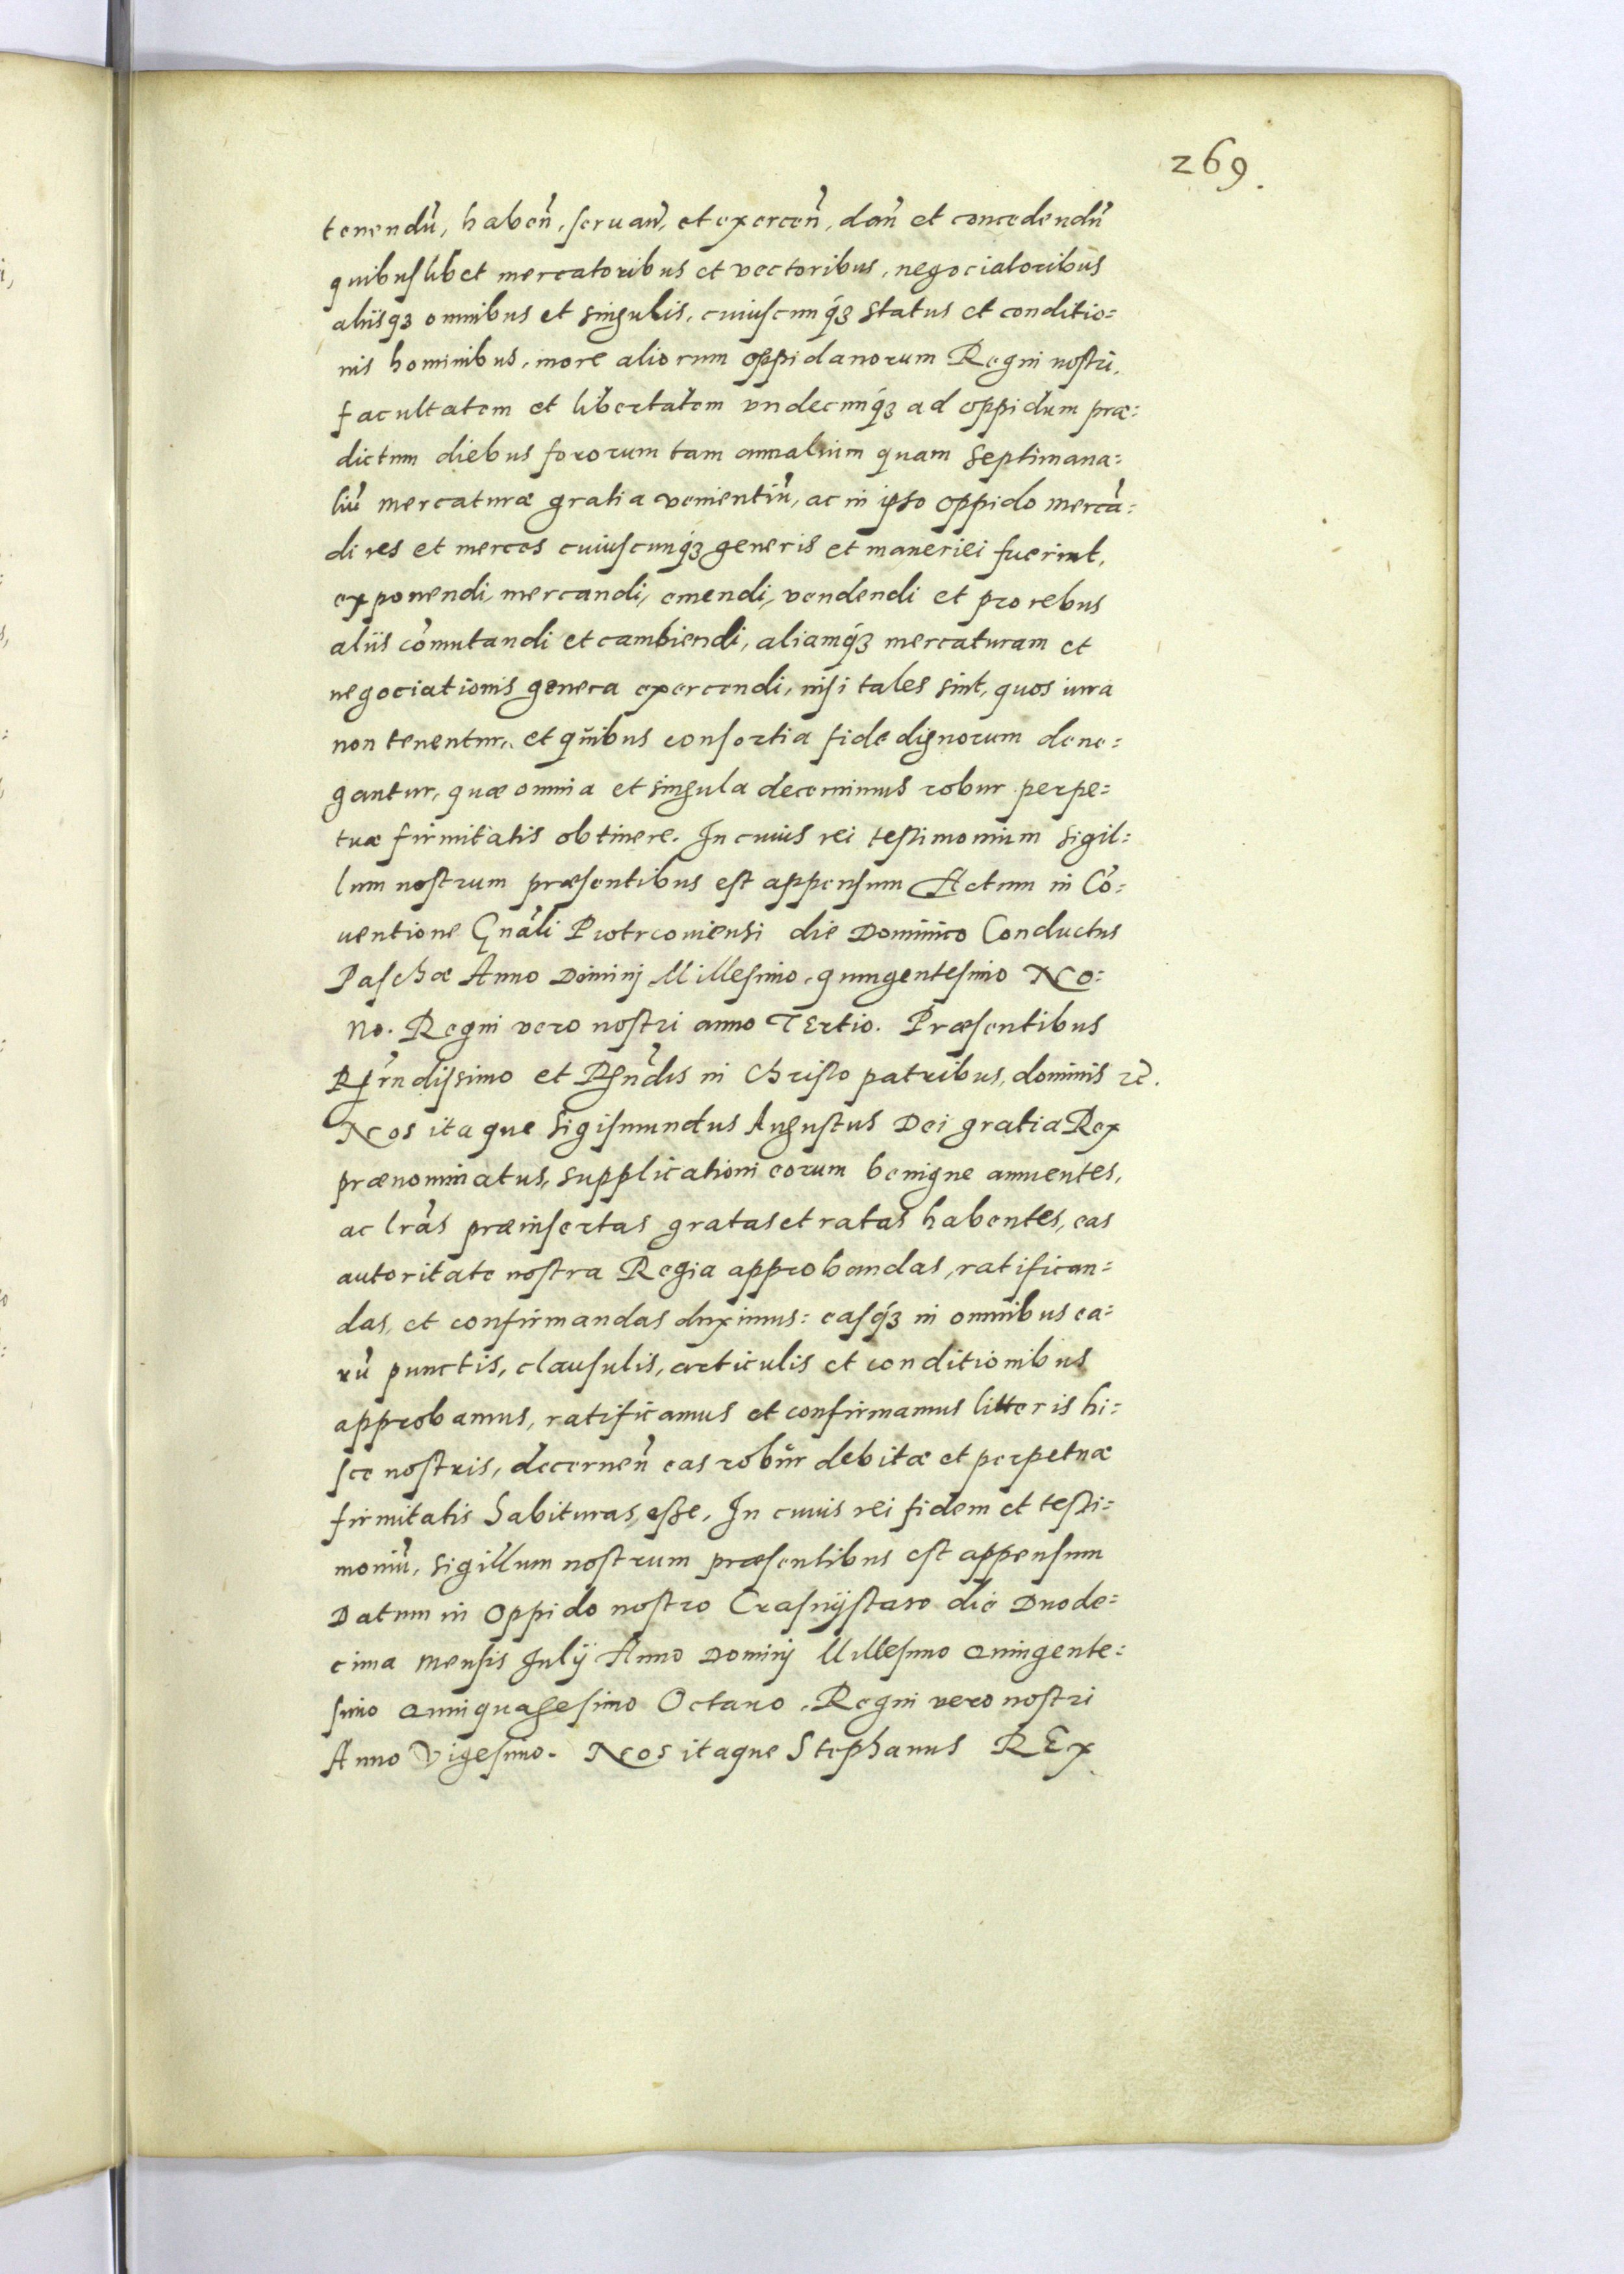 269.
tenendũ, habeñ, seruañ, et exerceñ, dañ et concedendũ
quibuslibet mercatoribus et vectoribus, negociatoribus
aliisqꝫ omnibus et singulis, cuiuscunqꝫ status et conditio=
nis hominibus, more aliorum oppidanorum Regni nostri,
facultatem et libertatem vndecunqꝫ ad oppidum præ=
dictum diebus fororum tam annalium quam septimana=
liũ mercaturæ gratia venientiũ, ac in ipso oppido mercã=
di res et merces cuiuscunqꝫ generis et maneriei fuerint,
exponendi, mercandi, emendi, vendendi et pro rebus
aliis cõmutandi et cambiendi, aliamqꝫ mercaturam et
negociationis genera exercendi, nisi tales sint, quos iura
non tenentur, et quibus consortia fide dignorum dene=
gantur, quæ omnia et singula decernimus robur perpe=
tuæ firmitatis obtinere. In cuius rei testimonium sigil=
lum nostrum præsentibus est appensum Actum in Cõ=
uentione Gnãli Piotrcouiensi die Dominico Conductus
Paschæ Anno Dominij Millesimo, quingentesimo No=
no. Regni vero nostri anno Tertio. Præsentibus
Rẽrndissimo et Rẽndis in Christo patribus, dominis ꝛc̃.
Nos itaque Sigismundus Augustus Dei gratia Rex
prænominatus, supplicationi eorum benigne annuentes,
ac lrãs præinsertas gratas et ratas habentes, eas
autoritate nostra Regia approbandas, ratifican=
das, et confirmandas duximus: easqꝫ in omnibus ea=
rũ punctis, clausulis, articulis et conditionibus
approbamus, ratificamus et confirmamus litteris hi=
sce nostris, decerneñ eas robur debitæ et perpetuæ
firmitatis habituras esse. In cuius rei fidem et testi=
moniũ, sigillum nostrum præsentibus est appensum
Datum in oppido nostro Crasnijstaw die Duode=
cima mensis Julij Anno Dominij Millesimo Quingente=
simo Quinquagesimo Octauo. Regni vero nostri
Anno Vigesimo. Nos itaque Stephanus REx